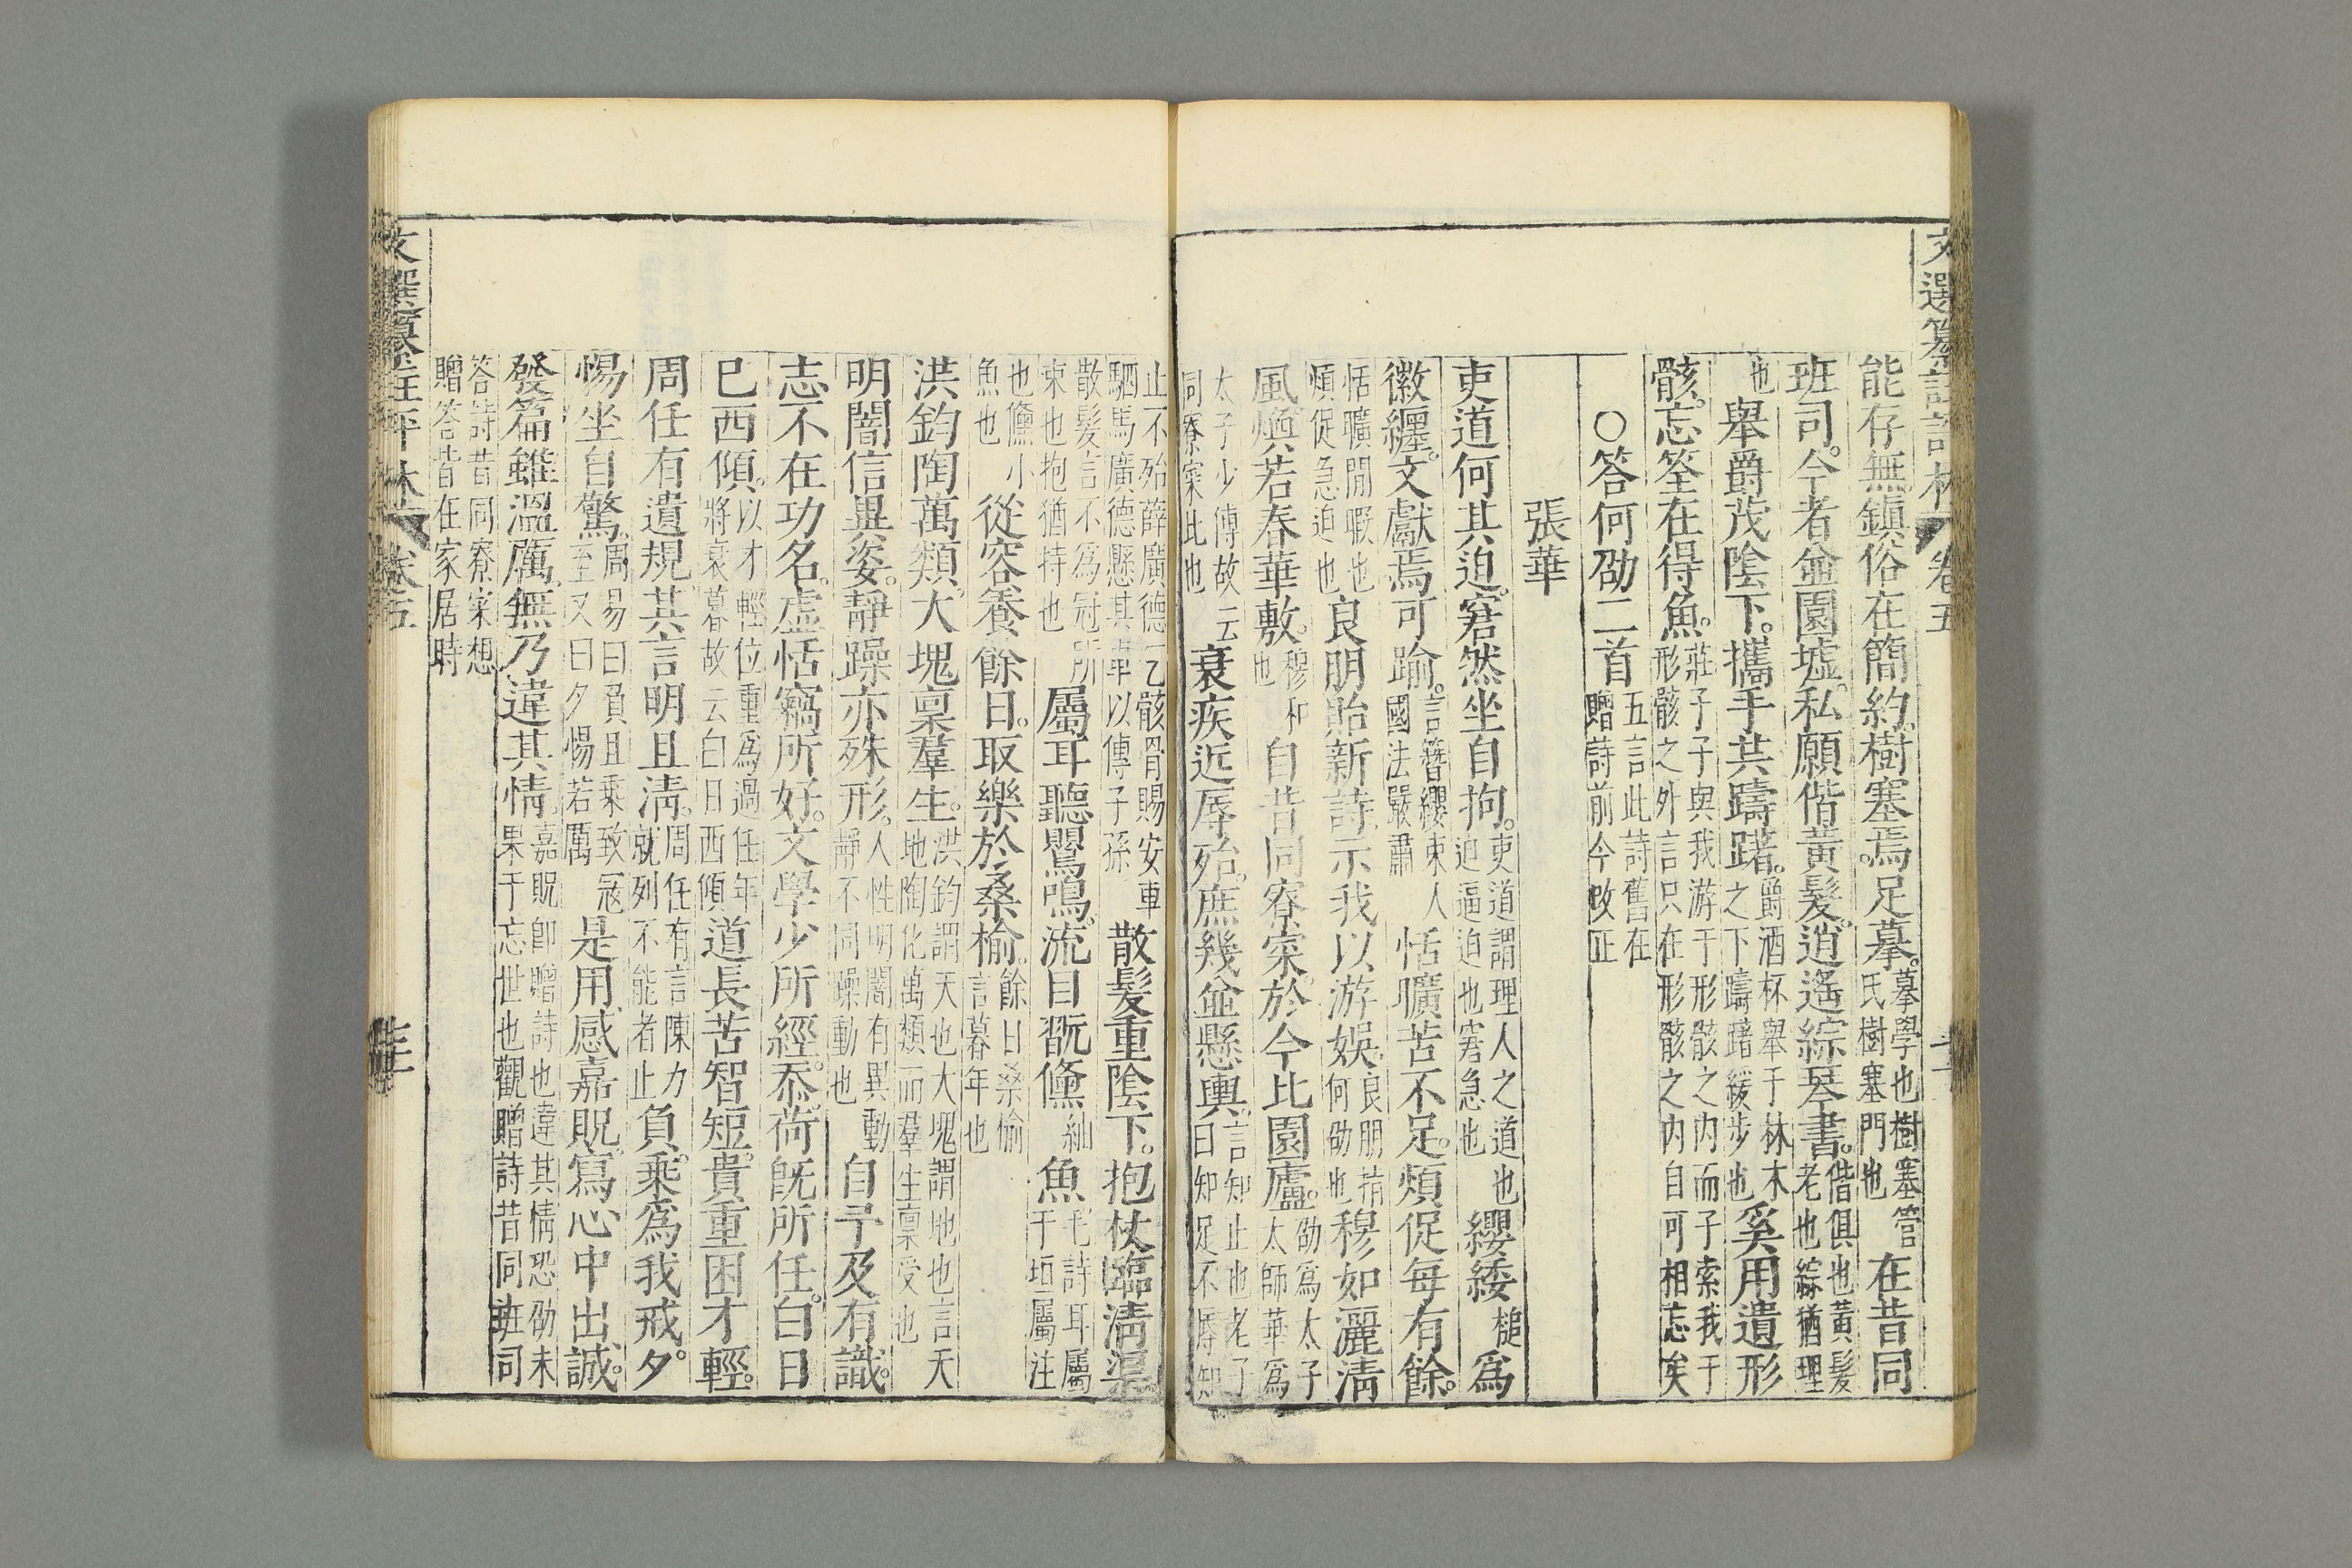 文選纂註評林 卷五
能存無鎮俗在簡約樹塞焉足摹。摹學也樹塞管氏樹塞門也在昔同
班司。今者並園墟。私願偕黃髮。逍遙綜琴書。偕俱也黃髮老也綜猶理
也舉爵茂陰下。攜手共躊躇。爵酒杯舉于林木之下躊躇緩步也奚用遺形
骸。忘筌在得魚。莊子子與我游于形骸之內而子索我于形骸之外言只在形骸之內自可相忘矣
○答何劭二首五言此詩舊在贈詩前今改正
張華
吏道何其迫。窘然坐自拘。吏道謂理人之道也迫逼迫也窘急也纓緌槌為
徽纆。文獻焉可踰。言簪纓束人國法嚴肅恬曠苦不足。煩促每有餘。
恬曠閒暇也煩促急迫也良朋貽新詩示我以游娛。良朋指何劭也穆如灑清
風煥若春華敷。穆和也自昔同寮寀於今比園廬。劭為太子太師華為
太子少傅故云同寮寀此也衰疾近辱殆。庶幾並懸輿。言知止也老子曰知足不辱知
止不殆薛廣德乞骸骨賜安車駟馬廣德懸其車以傳子孫散髮重陰下。抱杖臨清渠。
散髮言不為冠所束也抱猶持也屬耳聽鸎鳴。流目翫鯈紬魚毛詩耳屬于垣屬注
也鯈小魚也從容養餘日。取樂於桑榆。餘日桑榆言暮年也
洪鈞陶萬類。大塊稟羣生。洪鈞謂天也大塊謂地也言天地陶化萬類而羣生稟受也
明闇信異姿。靜躁亦殊形。人性明闇有異動靜不同躁動也自予及有識。
志不在功名。虛恬竊所好。文學少所經。忝荷旣所任。白日
已西傾。以才輕位重為過任年將衰暮故云白日西傾道長苦智短。貴重困才輕。
周任有遺規其言明且清。周任有言陳力就列不能者止負乘為我戒。夕
惕坐自驚。周易曰負且乘致寇至又曰夕惕若厲是用感嘉貺。寫心中出誠。
發篇雖溫厲。無乃違其情。嘉貺卽贈詩也違其情恐劭未果于忘世也觀贈詩昔同班司
答詩昔同寮寀想贈答皆在家居時
文選纂註評林 卷五